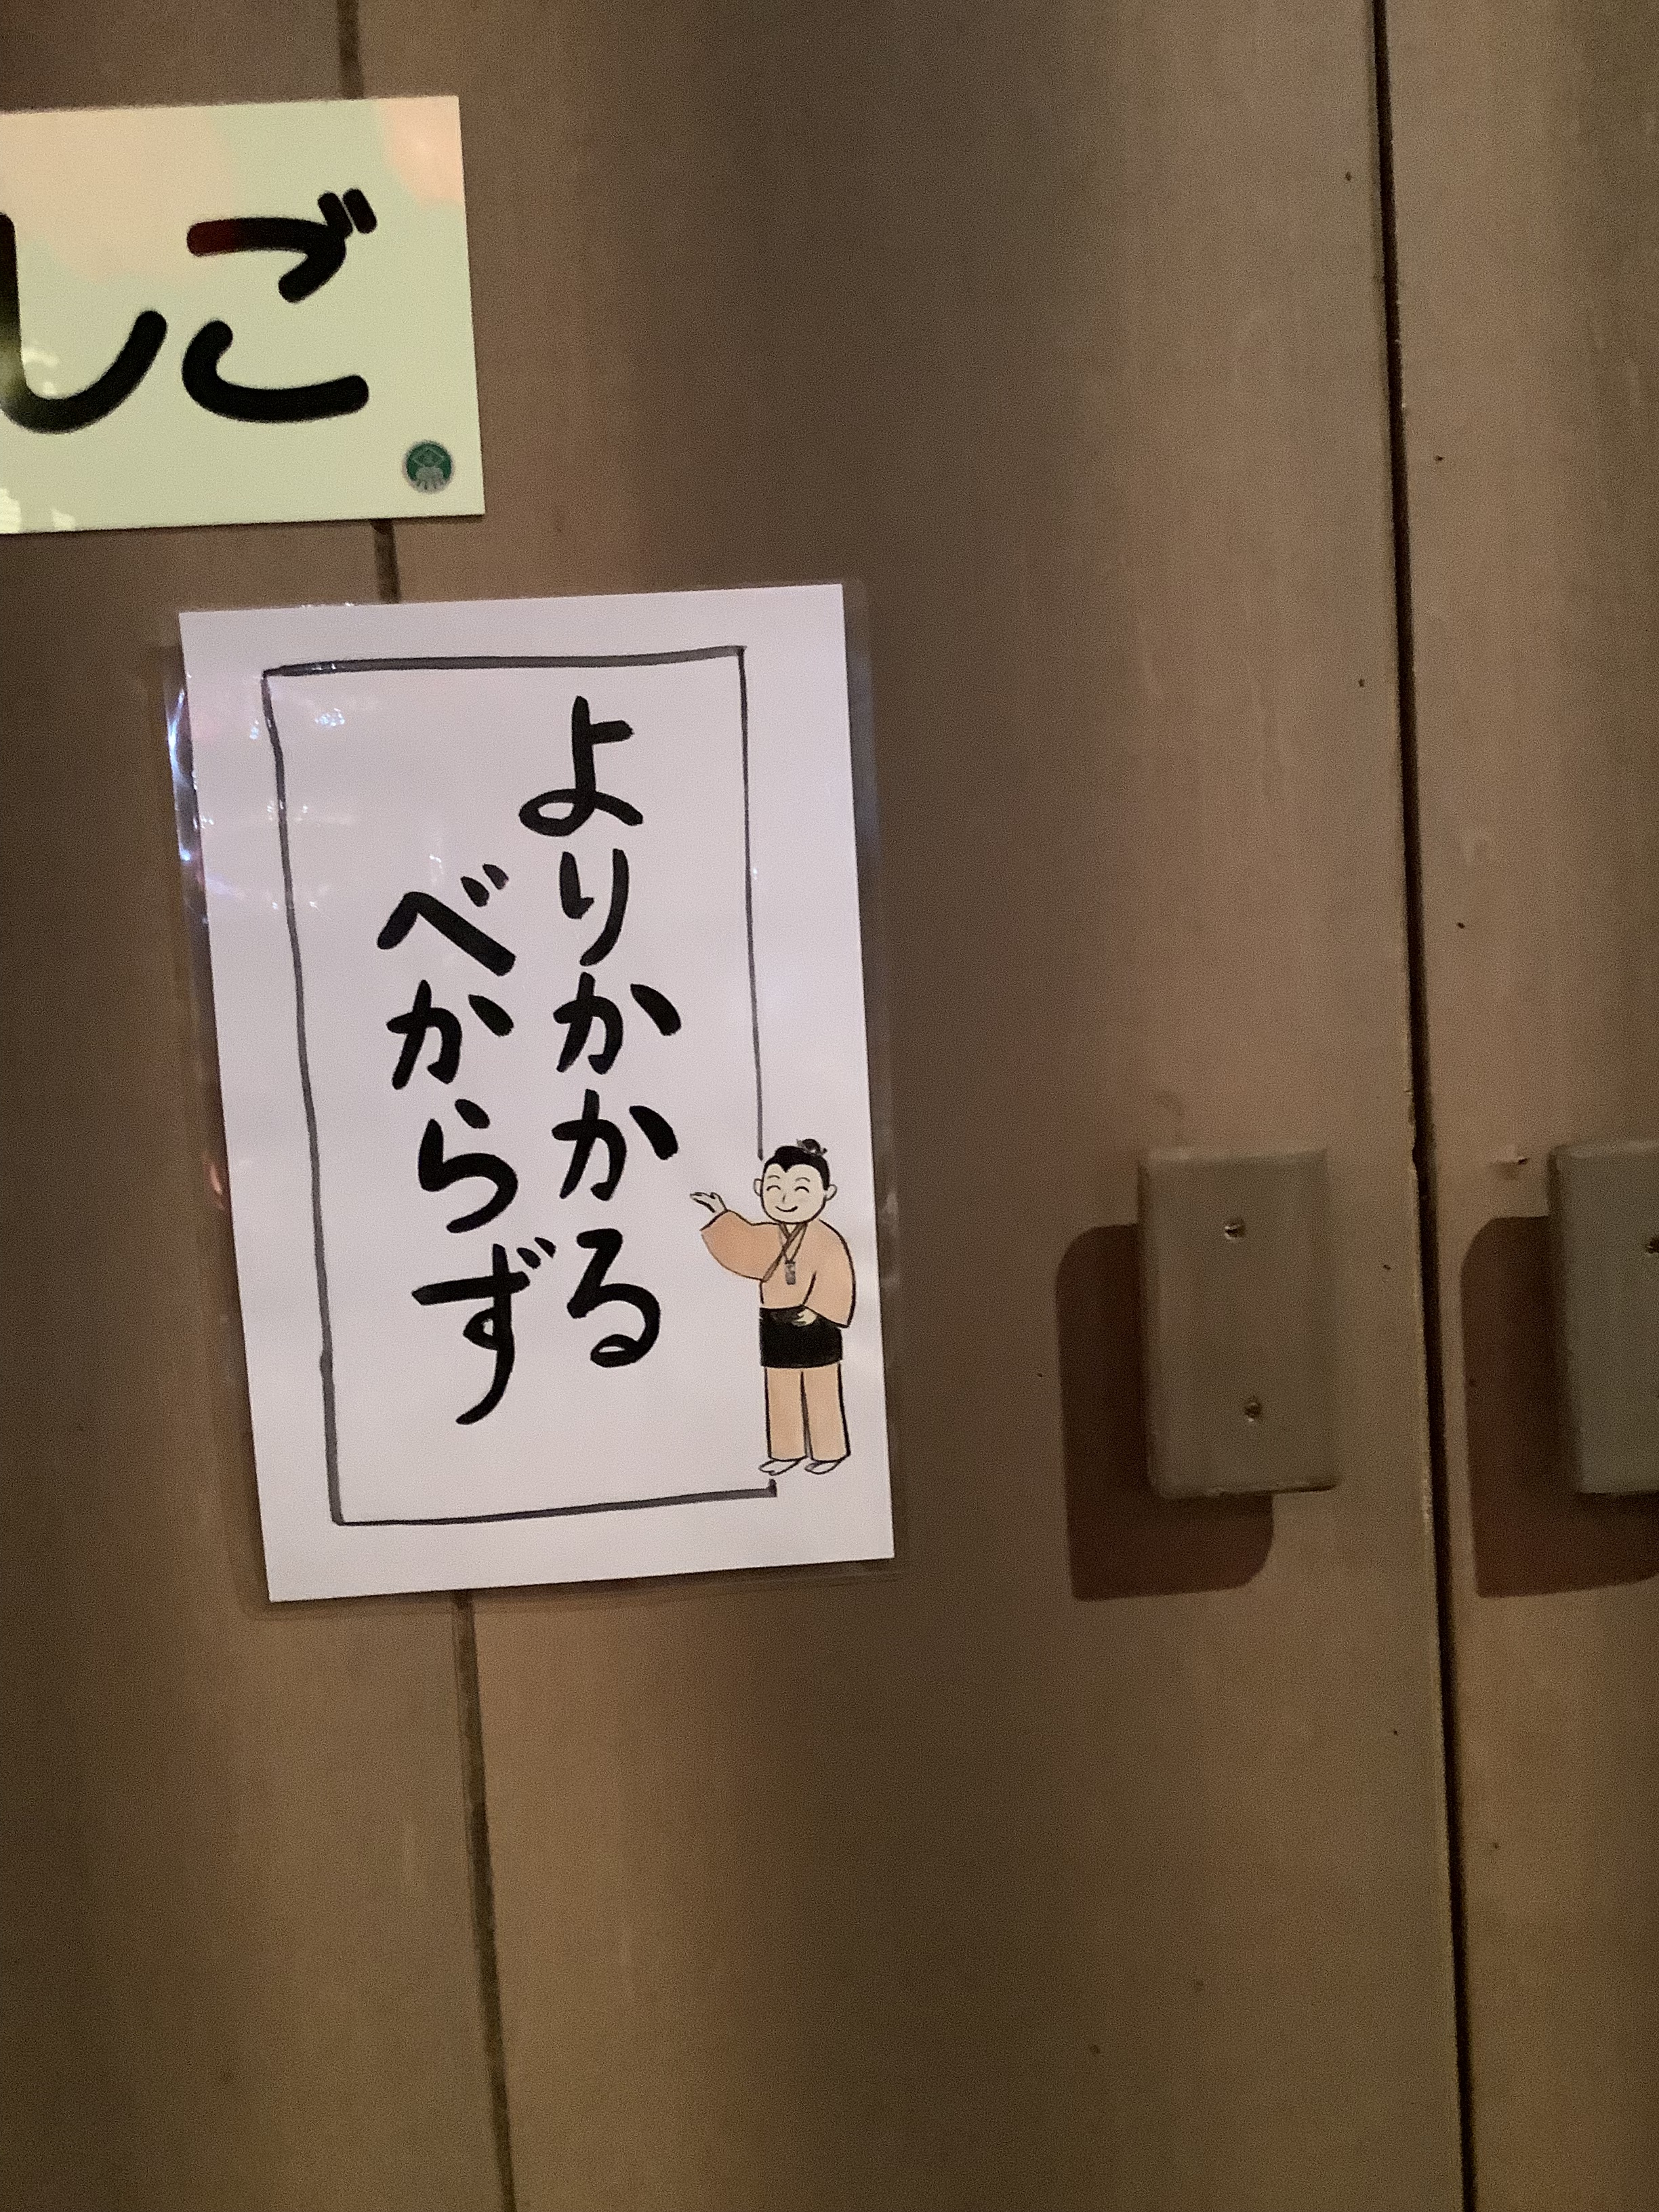 しご
よりかかる
べからず